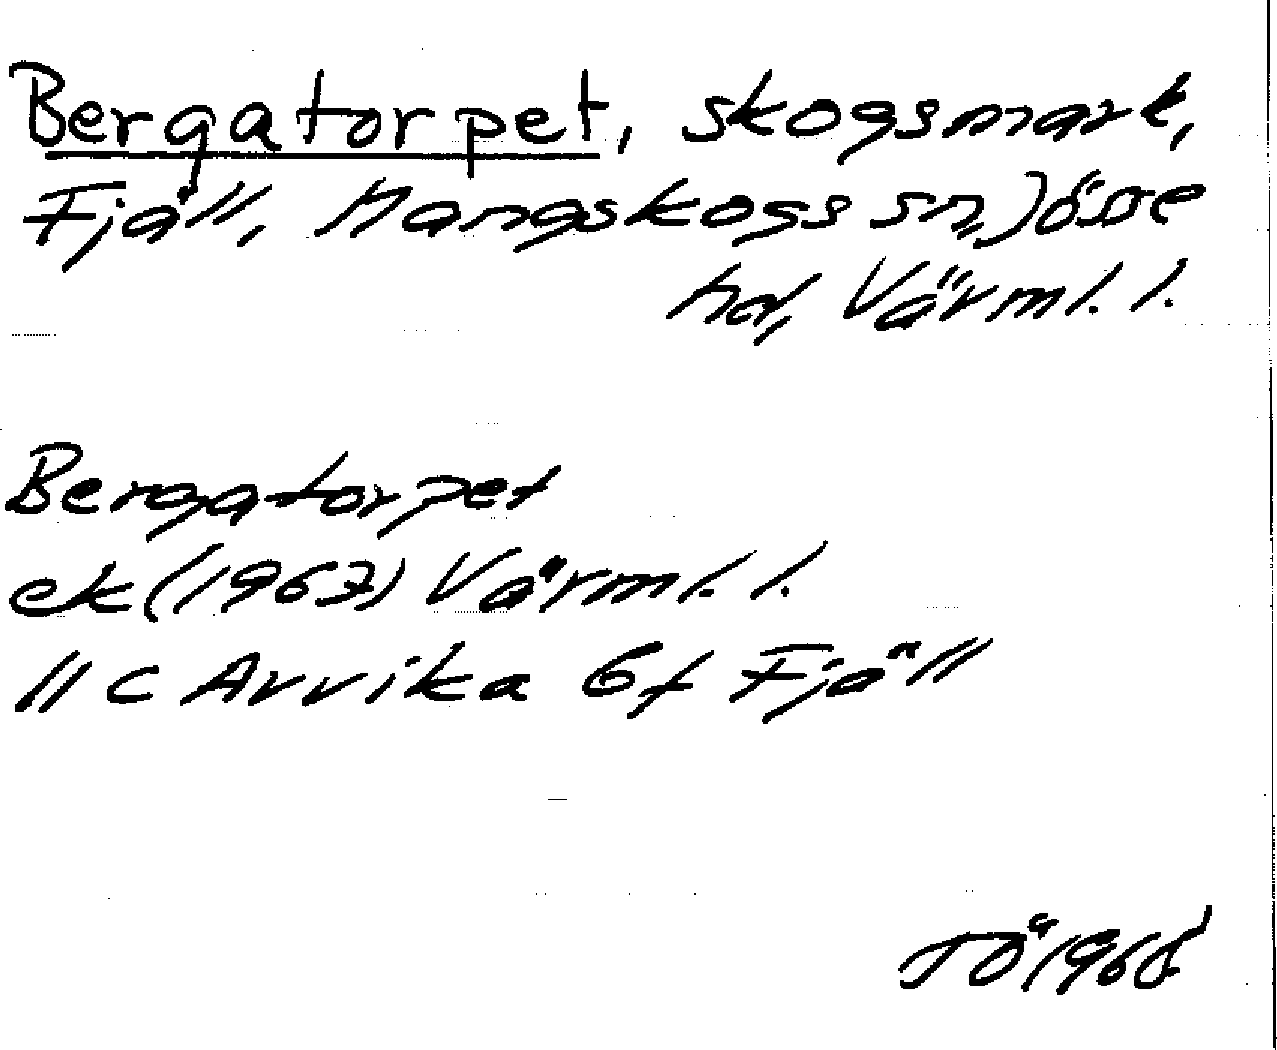 Bergatorpet, skogsmark,
Fjäll, Mangskogs sn, Jösse
hd, Värml. l.
Bergatorpet
ek (1967) Värml. l.
11 c Arvika 6f Fjäll
TÖ 1968